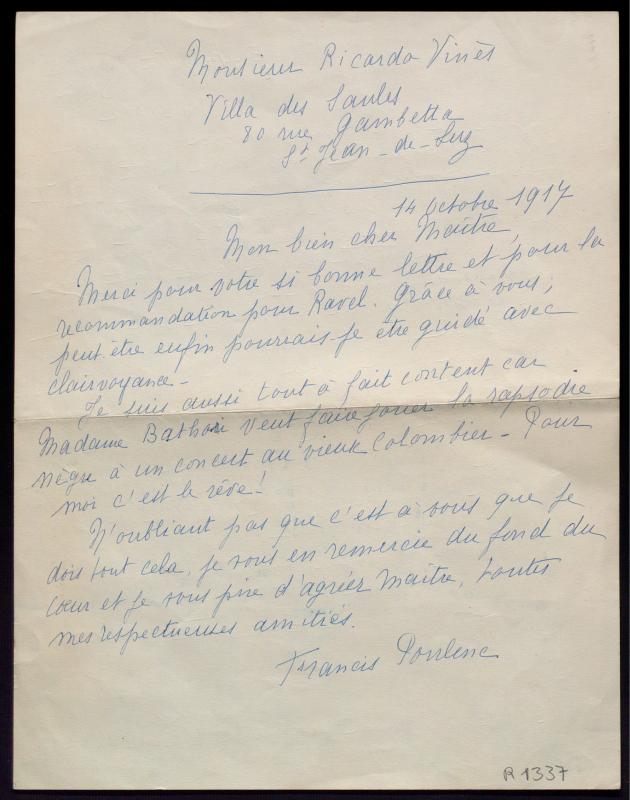 Monsieur Ricardo Vinès
Villa des Saules
80 rue Gambetta
St Jean-de-Luz
14 octobre 1917
Mon bien cher Maître,
Merci pour votre si bonne lettre et pour la
recommandation pour Ravel. Grâce à vous,
peut-être enfin pourrais-je etre guidé avec
clairvoyance -
Je suis aussi tout à fait content car
Madame Bathori veut faire jouer la rapsodie
nègre à un concert au vieux Colombier - Pour
moi c'est le rêve!
N'oubliant pas que c'est à vous que je
dois tout cela, je vous en remercie du fond du
cœur et je vous prie d'agréer Maitre, toutes
mes respectueuses amitiés.
Francis Poulenc
R 1337